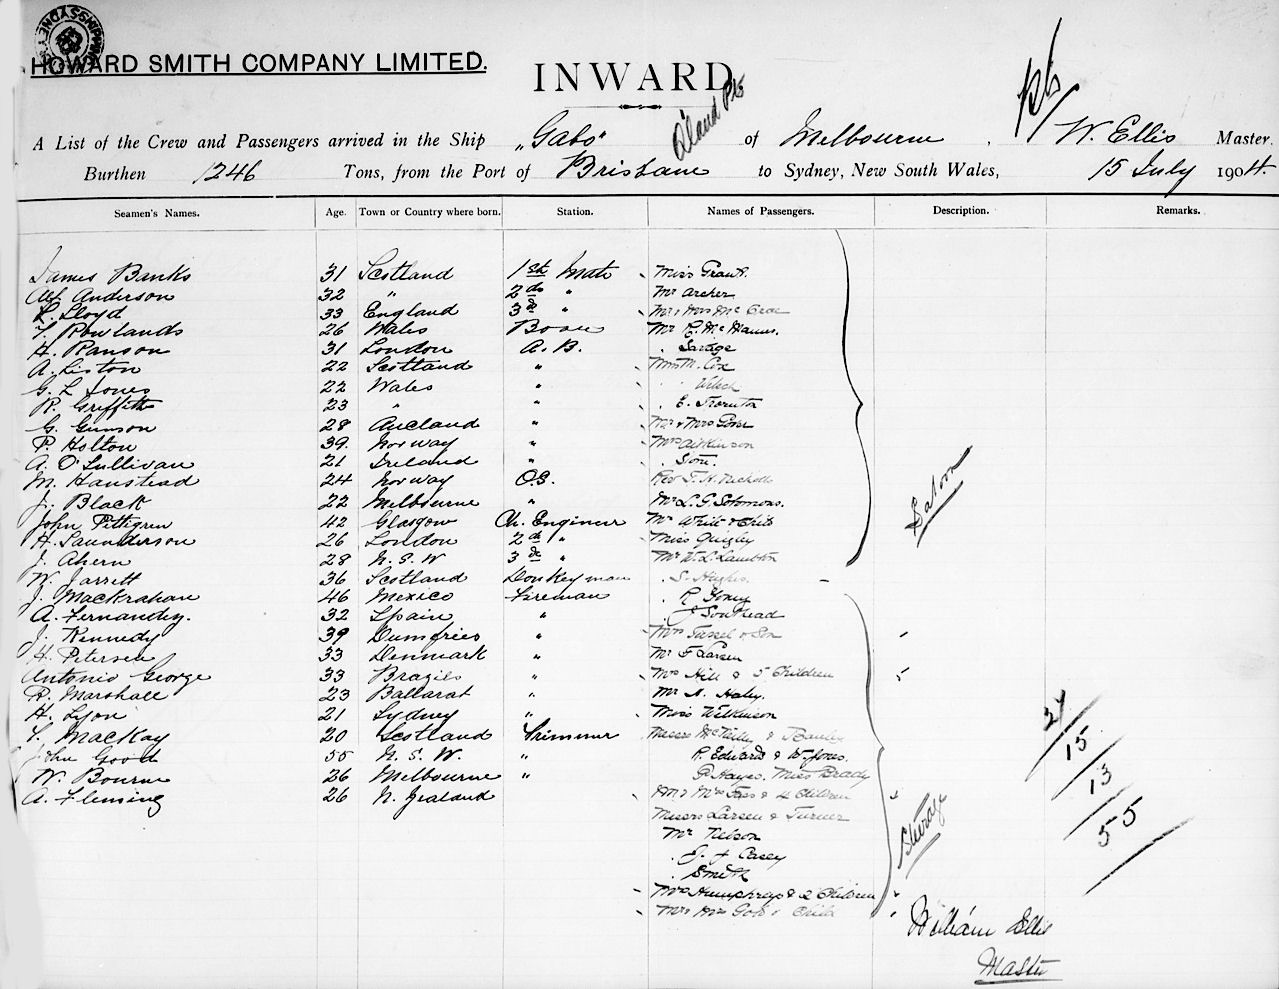 HOWARD SMITH COMPANY LIMITED.
INWARD
A List of the Crew and Passengers arrived in the Ship "Gabo" of Melbourne, W. Ellis Master.
Burthen 1246 Tons, from the Port of Brisbane to Sydney, New South Wales, 15 July 1904.
Seamen's Names. Age. Town or Country where born. Station. Names of Passengers. Description. Remarks.
James Banks 31 Scotland 1st Mate Miss Grant.
Alf Anderson 32 " 2nd " Mr Archer
R. Lloyd 33 England 3rd " Mr & Mrs
Y. Rowlands 26 Wales Bosun Mr R. Mc Manus.
H. Ranson 31 London A. B. Savage
A. Liston 22 Scotland " M. Cox
G. L. Jones 22 Wales " Welsh
R. Griffith 23 " " E. Thornton
G. Gunson 28 Aucland " Mr & Mrs
P. Holton 39. Norway " Mrs Aitkinson
A. O'Sullivan 21 Ireland "
M. Hanstead 24 Norway O.S. Rev F. H. Nicholl
J. Black 22 Melbourne " Mr L. G. Solomons.
John Pettigren 42 Glasgow Ch. Engineer Mr White & Child
H. Saunderson 26 London 2nd " Miss Quigley
J. Ahern 28 N. S. W 3rd " Mr W. L. Lambton
Saloon
W. Jarrett 36 Scotland Donkeyman S. Hughes.
J. Mackrahan 46 Mexico Fireman R
A. Fernandez. 32 Spain " J
J. Kennedy 39 Dumfries " Mrs Tassel & Son
H. Petersen 33 Denmark " Mr F Larsen
Antonio George 33 Brazils " Mrs Hill & 5 Children
R. Marshall 23 Ballarat " Mr A. Haley.
H. Lyon 21 Sydney " Miss Wilkinson
Y. MacKay 20 Scotland Trimmer Messrs
John Good 55 N. S. W. " R. Edwards & W. Jones.
W. Bourne 26 Melbourne " P. Hayes. Miss Brady
A. Fleming 26 N. Zealand Mr & Mrs & 4 Children
Messrs Larsen & Turner
Mr Nelson
J. Casey
Smith
Mrs Humphrays & 2 Children
& Child
Steerage
27
15
13
55
William Ellis
Master